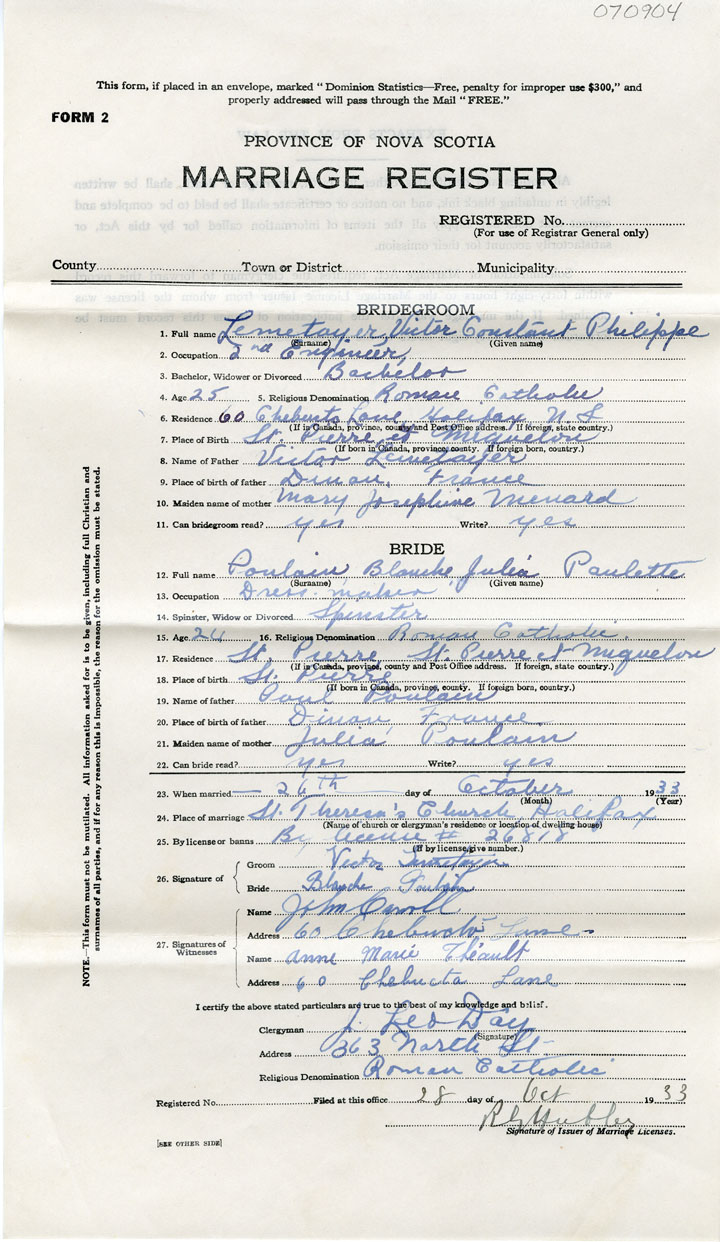 070904
This form, if placed in an envelope, marked "Dominion Statistics—Free, penalty for improper use $300," and
properly addressed will pass through the Mail "FREE."
FORM 2
PROVINCE OF NOVA SCOTIA
MARRIAGE REGISTER
REGISTERED No.
(For use of Registrar General only)
County Town or District Municipality
BRIDEGROOM
1. Full name Lemetayer, Victor Constant Philippe
(Surname) (Given name)
2. Occupation 2nd Engineer
3. Bachelor, Widower or Divorced Bachelor
4. Age 25 5. Religious Denomination Roman Catholic
6. Residence 60 Chebucto Lane Halifax N S
(If in Canada, province, county and Post Office address. If foreign, state country.)
7. Place of Birth St. Pierre et Miquelon
(If born in Canada, province, county. If foreign born, country.)
8. Name of Father Victor Lemetayer
9. Place of birth of father Dinan, France
10. Maiden name of mother Mary Josephine Menard
11. Can bridegroom read? yes Write? yes
BRIDE
12. Full name Poulain Blanche, Julia Paulette
(Surname) (Given name)
13. Occupation Dress-maker
14. Spinster, Widow or Divorced Spinster
15. Age 24 16. Religious Denomination Roman Catholic.
17. Residence St. Pierre, St. Pierre et Miquelon
(If in Canada, province, county and Post Office address. If foreign, state country.)
18. Place of birth St. Pierre
(If born in Canada, province, county. If foreign born, country.)
19. Name of father Paul Poulain
20. Place of birth of father Dinan, France
21. Maiden name of mother Julia Poulain
22. Can bride read? yes Write? yes
23. When married 26th day of October 1933
(Month) (Year)
24. Place of marriage St. Theresa's Church, Halifax
(Name of church or clergyman's residence or location of dwelling house)
25. By license or banns By license # 26818
(If by license, give number.)
26. Signature of
Groom Victor Lemetayer
Bride Blanche Poulain
27. Signatures of Witnesses
Name John Carroll
Address 60 Chebucto Lane
Name Anne Marie Théault
Address 60 Chebucta Lane
I certify the above stated particulars are true to the best of my knowledge and belief.
Clergyman J. Leo Day
(Signature)
Address 363 North St
Religious Denomination Roman Catholic
Registered No. Filed at this office 28 day of Oct 1933
Signature of Issuer of Marriage Licenses.
[SEE OTHER SIDE]
NOTE.—This form must not be mutilated. All information asked for is to be given, including full Christian and
surnames of all parties, and if for any reason this is impossible, the reason for the omission must be stated.